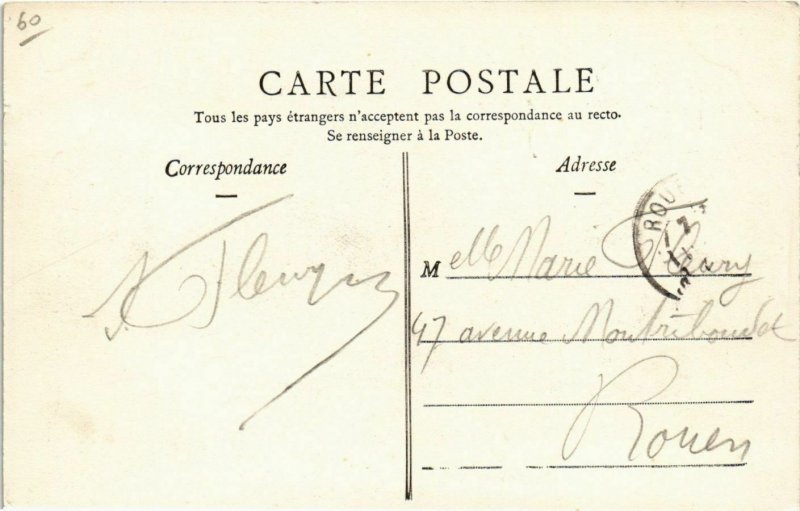 60
CARTE POSTALE
Tous les pays étrangers n'acceptent pas la correspondance au recto.
Se renseigner à la Poste.
Correspondance
Adresse
Fleury
ROUEN
Melle Marie Fleury
47 avenue Montriboudet
Rouen